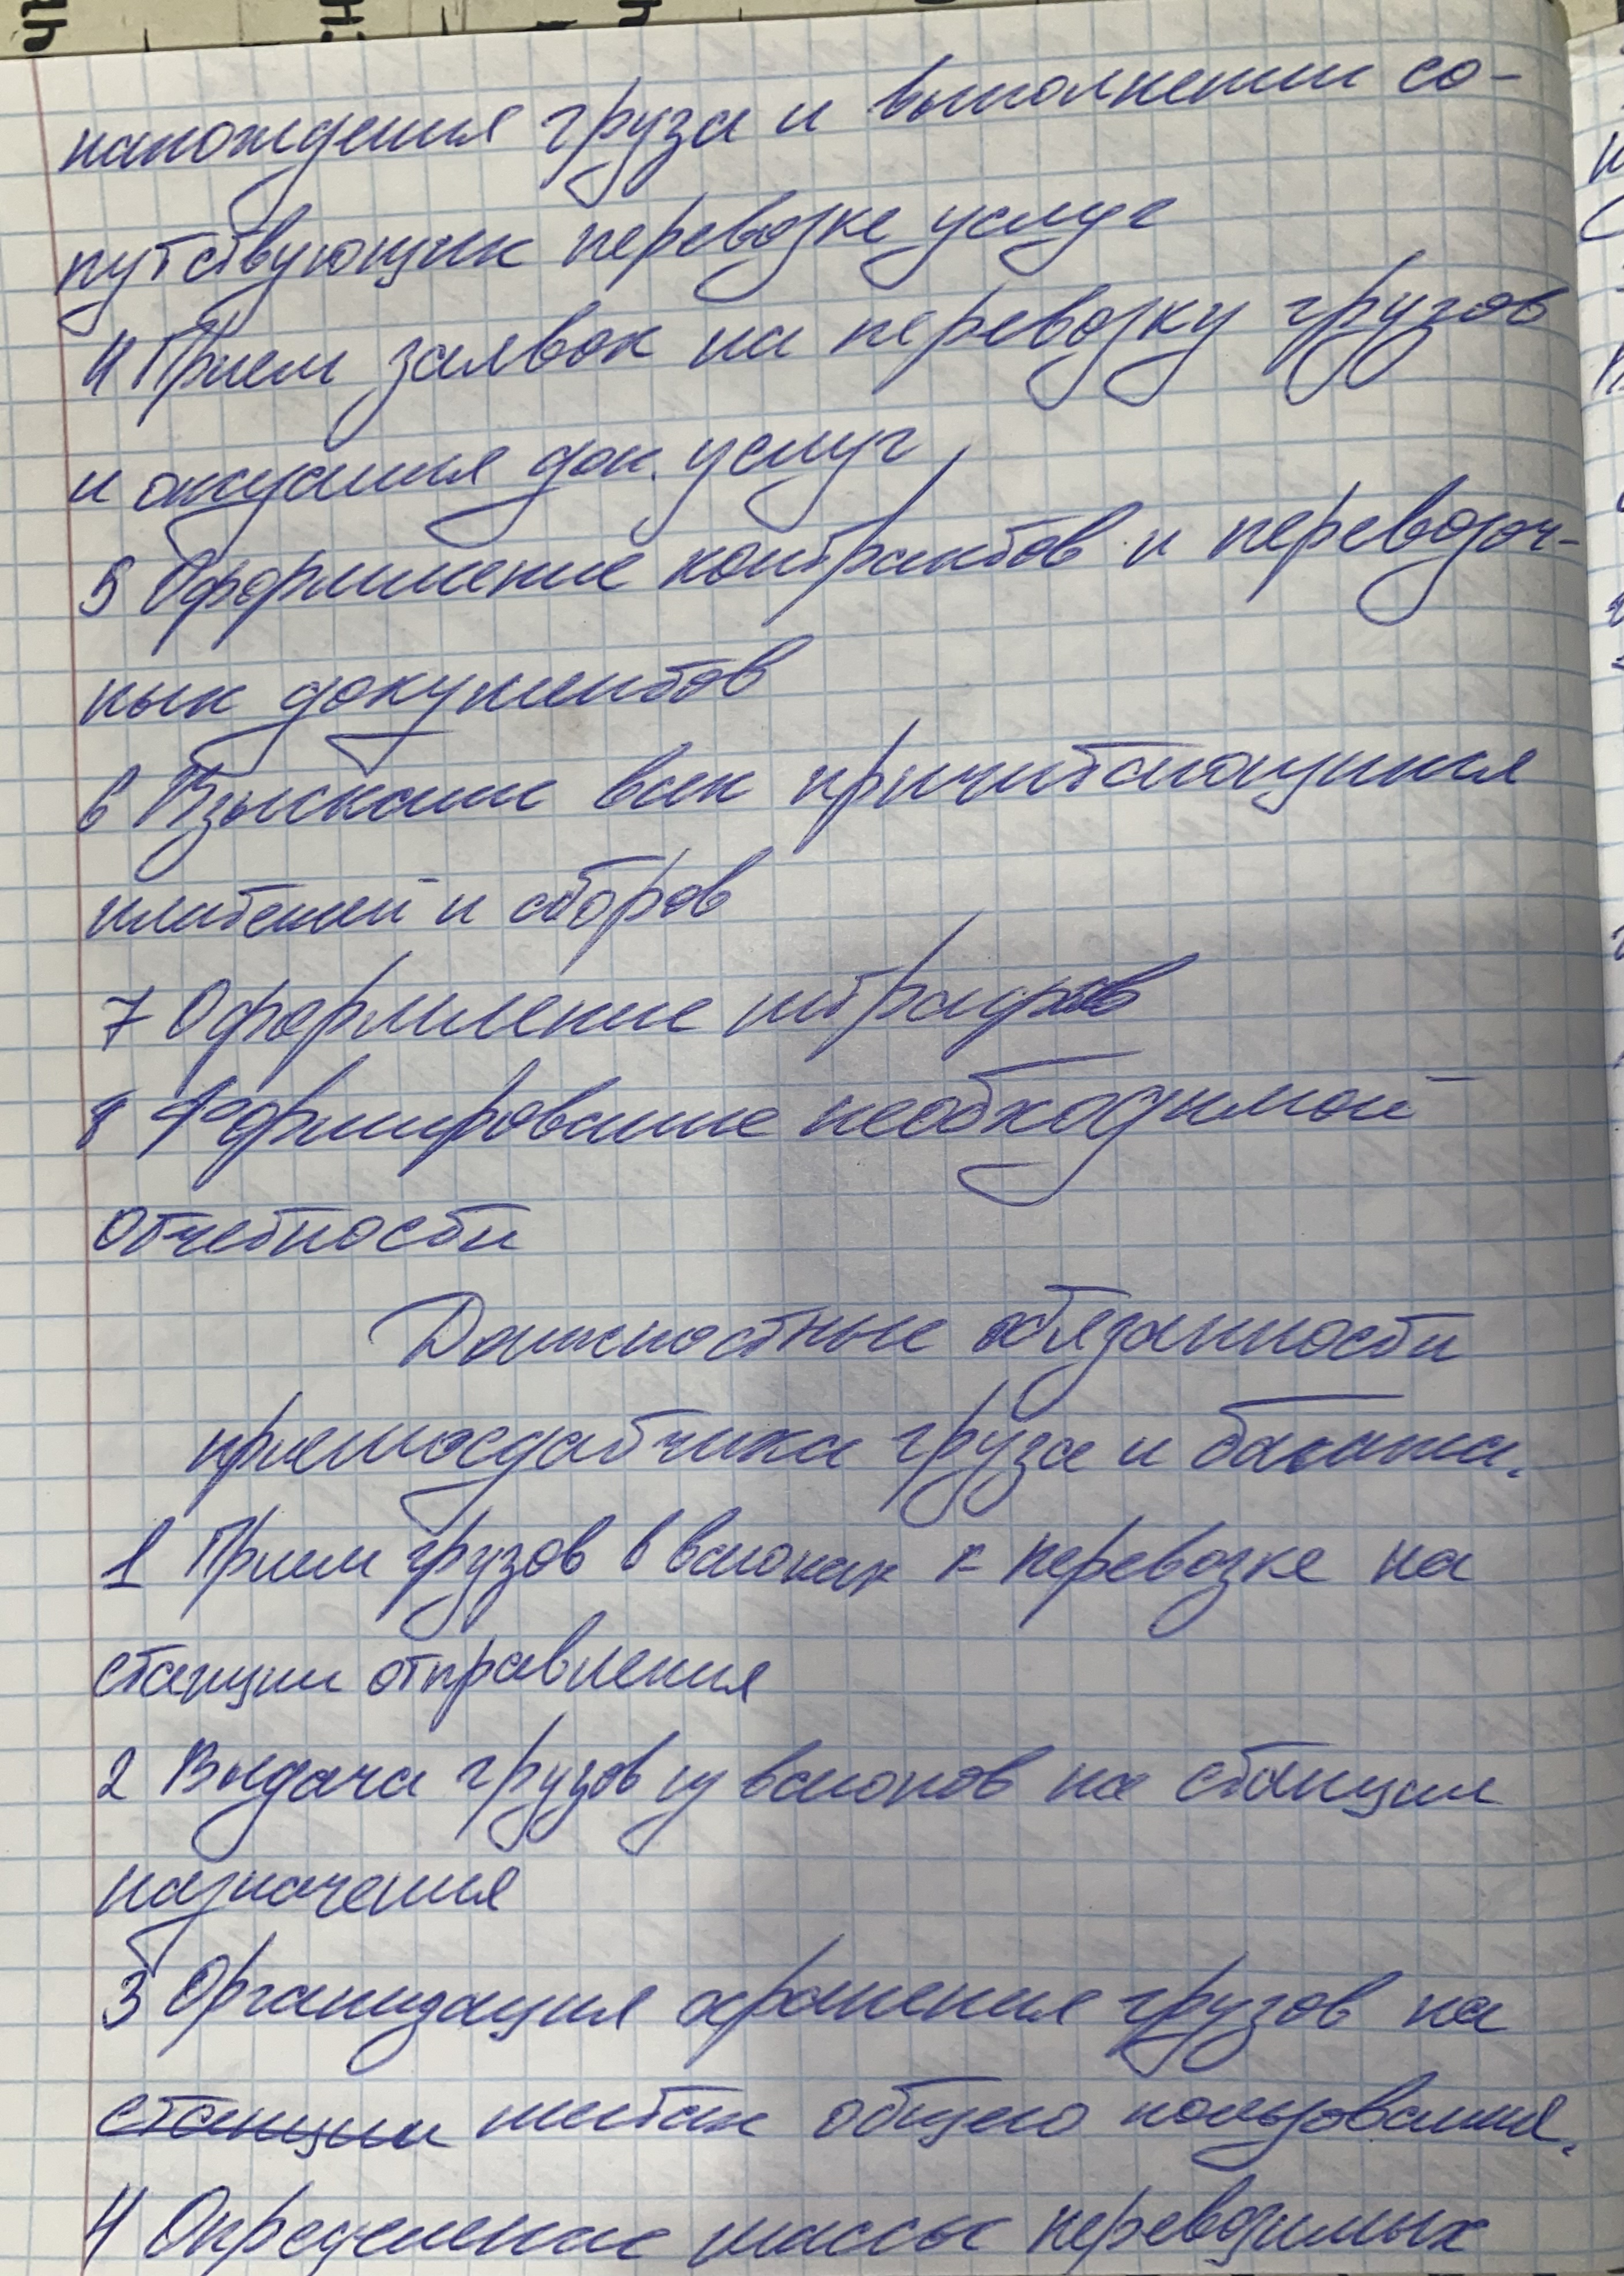 нахождения груза и выполнении со-
путствующих перевозке услуг
4 Прием заявок на перевозку грузов
и оказания доп. услуг
5 Оформление контрактов и перевозоч-
ных документов
6 Взыскание всех причитающихся
платежей и сборов
7 Оформление штрафов
8 Формирование необходимой
отчетности
Должностные обязанности
приемосдатчика груза и багажа.
1 Прием грузов в вагонах к перевозке на
станции отправления
2 Выдача грузов из вагонов на станции
назначения
3 Организация хранения грузов на
станции местах общего пользования.
4 Определение массы перевозимых